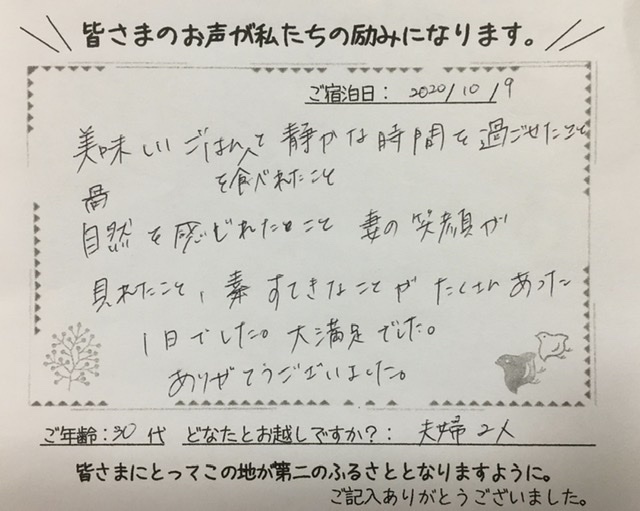 皆さまのお声が私たちの励みになります。
ご宿泊日： 2020/10/9
美味しいごはんと静かな時間を過ごせたこと
を食べれたこと
自然を感じれたこと 妻の笑顔が
見れたこと、素 すてきなことがたくさんあった
1日でした。大満足でした。
ありがとうございました。
ご年齢：30 代 どなたとお越しですか？： 夫婦2人
皆さまにとってこの地が第二のふるさととなりますように。
ご記入ありがとうございました。